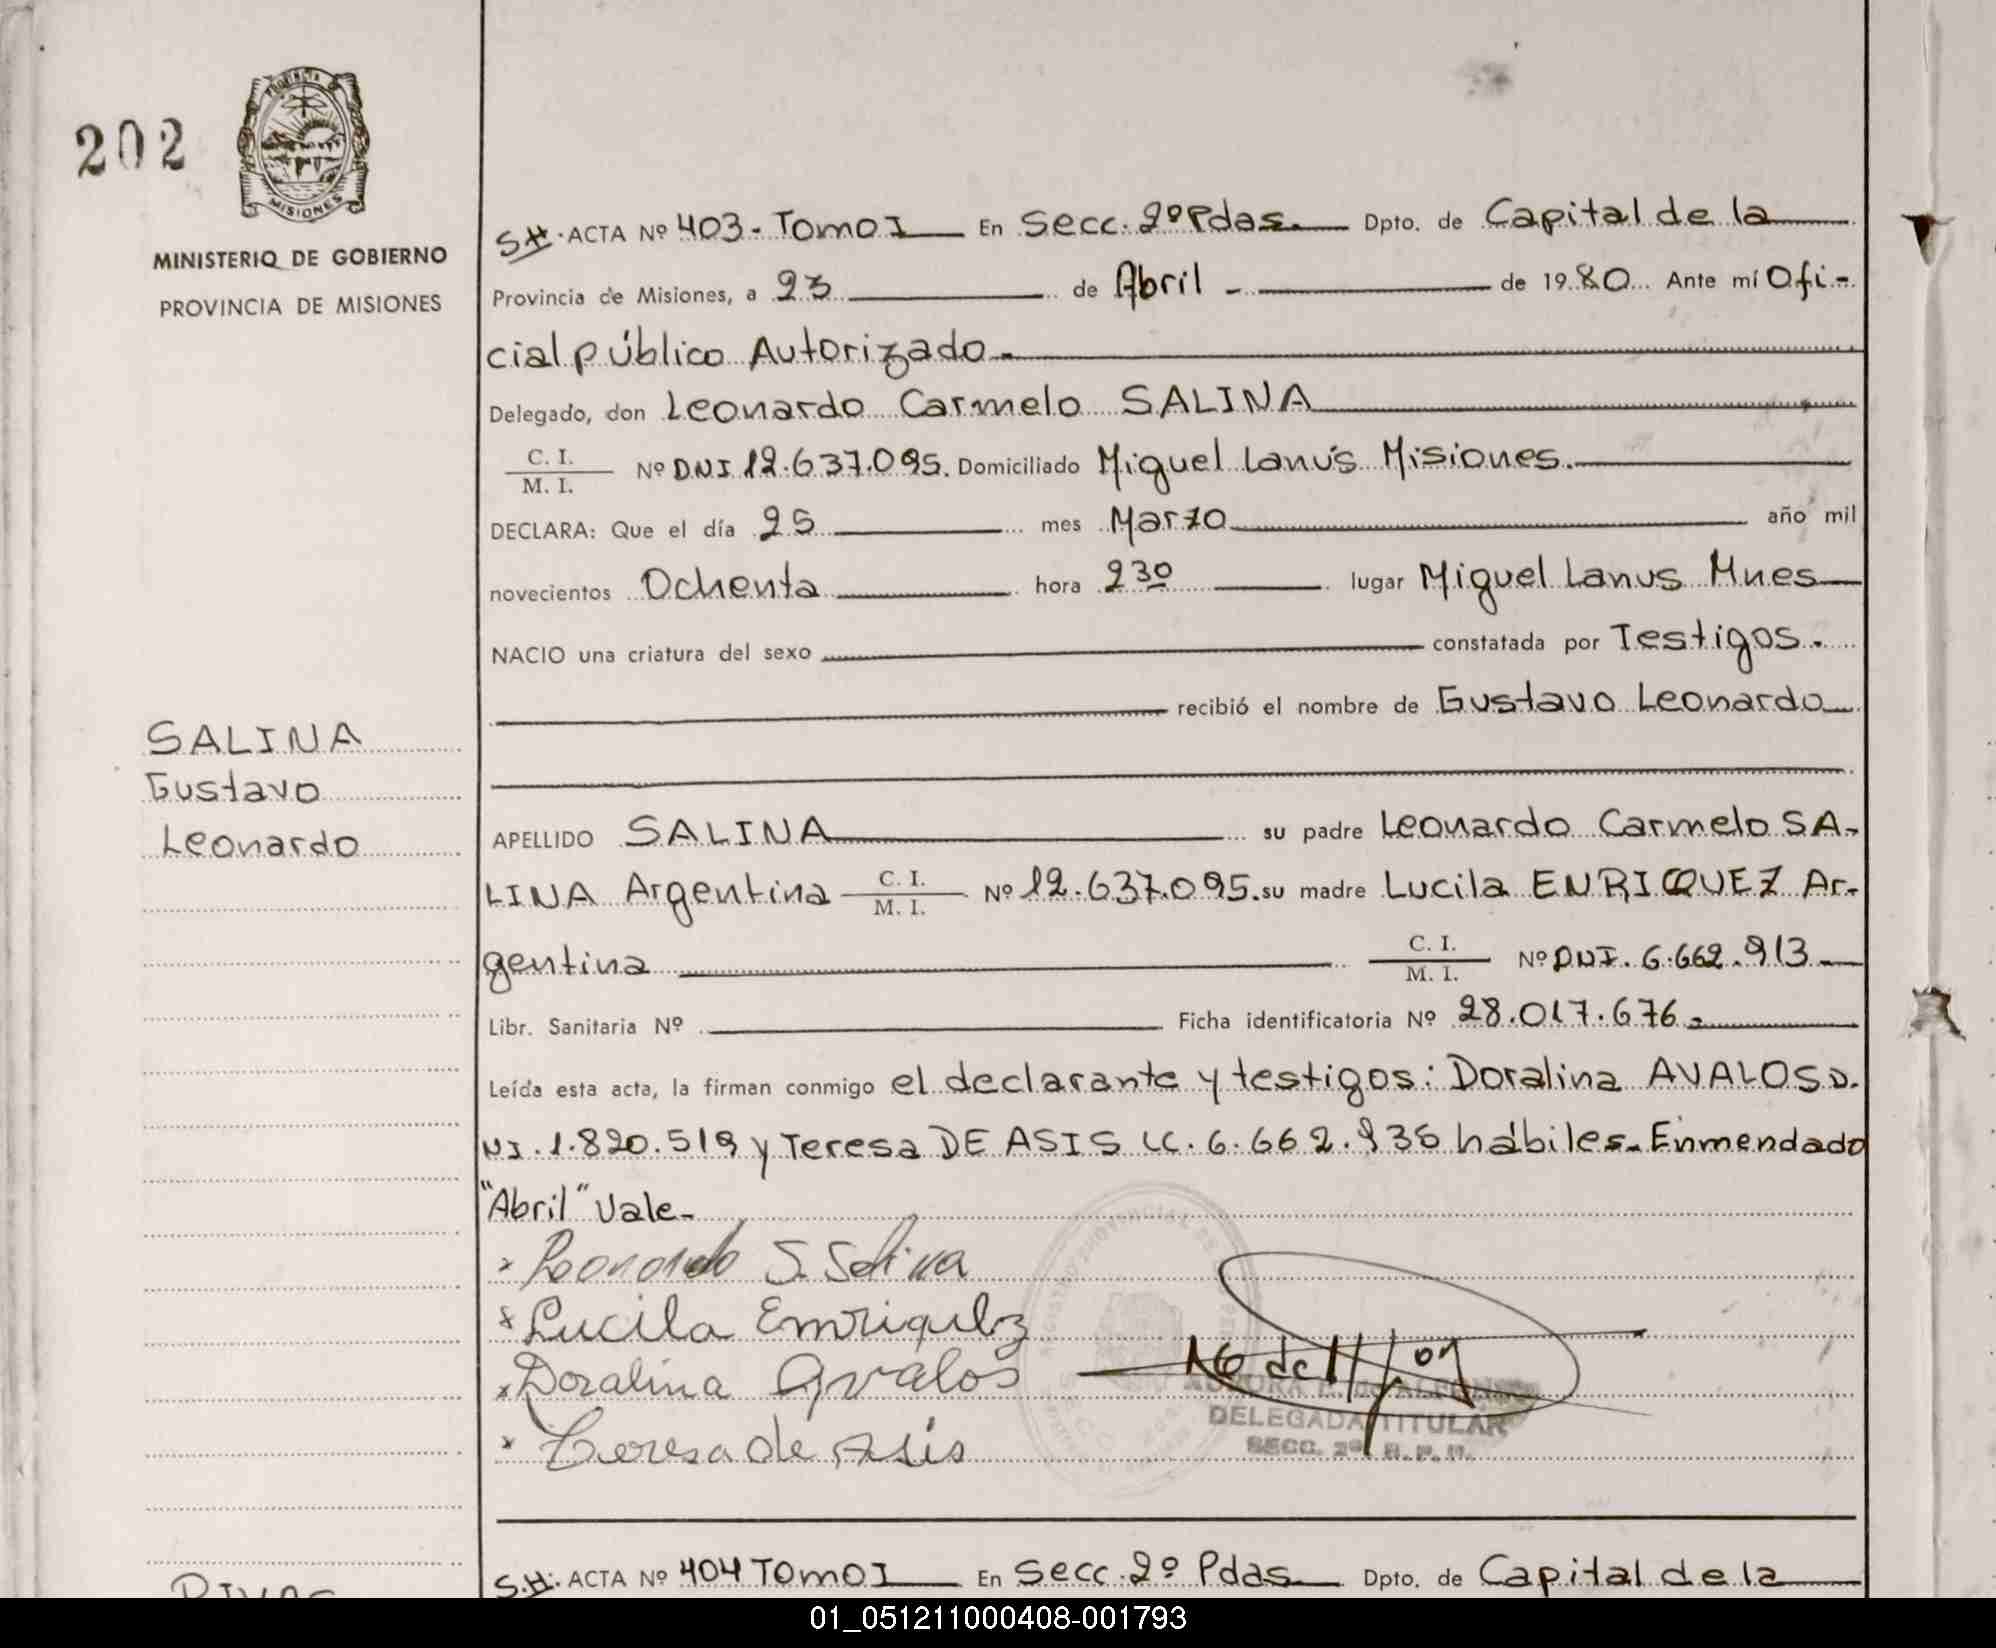 202
MISIONES
MINISTERIO DE GOBIERNO
PROVINCIA DE MISIONES
SALINA
Gustavo
Leonardo
S.H. ACTA Nº 403 - Tomo I En Secc. 2º Pdas. Dpto. de Capital de la
Provincia de Misiones, a 23 de Abril - de 19 80 Ante mí Ofi-
cial público Autorizado -
Delegado, don Leonardo Carmelo SALINA
C. I.
M. I. Nº DNI 12.637.095. Domiciliado Miguel Lanús Misiones.
DECLARA: Que el día 25 mes Marzo año mil
novecientos Ochenta hora 2 30 lugar Miguel Lanus Mnes
NACIO una criatura del sexo constatada por Testigos.
recibió el nombre de Gustavo Leonardo
APELLIDO SALINA su padre Leonardo Carmelo SA-
LINA Argentina C. I. M. I. Nº 12.637.095. su madre Lucila ENRIQUEZ Ar-
gentina C. I. M. I. Nº DNI. 6.662.913
Libr. Sanitaria Nº Ficha identificatoria Nº 28.017.676 -
Leída esta acta, la firman conmigo el declarante y testigos: Doralina AVALOS D.
NI. 1.820.519 y Teresa DE ASIS LC. 6.662.936 hábiles - Enmendado
"Abril" Vale -
x Leonardo S. Salina
x Lucila Enriquez
x Doralina Avalos
x Teresa de Asis
DELEGADA TITULAR
SECC. 2º
S.H. ACTA Nº 404 Tomo I En Secc. 2º Pdas Dpto. de Capital de la
01_051211000408-001793